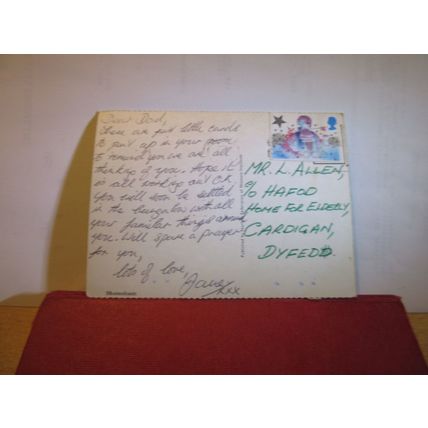 Dear Dad,
These are just little cards
to put up in your room
to remind you we are all
thinking of you. Hope it
is all working out O.K.
You will soon be settled
in the bungalow with all
your familiar things around
you. Will spare a prayer
for you,
lots of love,
xxx
MR. L. ALLEN,
% HAFOD
HOME FOR ELDERLY,
CARDIGAN,
DYFED.